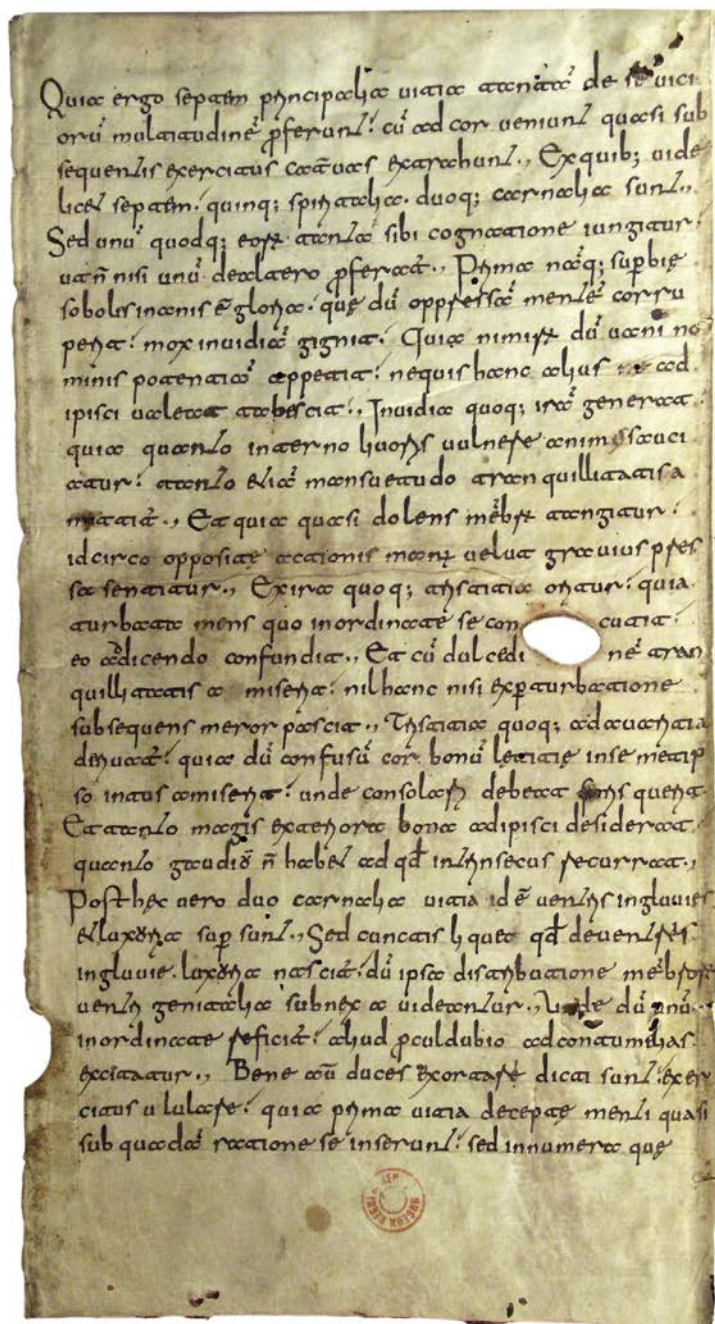 Quia ergo septem principalia uitia tantā de se uici
orū multitudinē ꝓferunt. cū ad cor ueniunt quasi sub
sequentis exercitus cateruas extrahunt., Ex quib; uide
licet septem. quinq; spiritalia. duoq; carnalia sunt.,
Sed unū quodq; eoꝝ tanta sibi cognatione iungitur.
ut ñ nisi unū de altero ꝓferat., Prima nāq; supbię
sobolis inanis ē gloria. quę dū oppressā mentē corru
perit. mox inuidiā gignit. Quia nimiꝝ dū uani no
minis potentiā appetit. ne quis hanc alius ad
ipisci ualeat tabescit., Inuidia quoq; irā generat.
quia quanto interno liuoris uulnere animus sauci
atur. tanto etiā mansuetudo tranquillitatis a
mittit̄., Et quia quasi dolens mēbꝝ tangitur.
idcirco oppositę actionis man; uelut grauius pres
sa sentitur., Ex ira quoq; tristitia oritur. quia
turbata mens quo inordinatē se con cutit.
eo addicendo confundit., Et cū dulcedi nē tran
quillitatis a miserit. nil hanc nisi ex perturbatione
subsequens meror pascit., Tristitia quoq; ad auaritia
deriuat̄. quia dū confusū cor bonū lętitię in se metip
so intus amiserit. unde consolari debeat foris querit.
Et tanto magis exteriora bona adipisci desiderat.
quanto gaudiū ñ habet ad qđ intrinsecus recurrat.,
Post hęc uero duo carnalia uitia id ē uentris ingluuies
et luxuria sup sunt., Sed cunctis liquet qđ de uentris
ingluuie. luxuria nascit̄. dū ipsa distributione mēbrorū
uentri genitalia subnex a uideantur., Unde dū unū
inordinate reficit̄. aliud ꝓculdubio ad contumelias
excitatur., Bene aū duces exortare dicti sunt. exer
citus ululare. quia prima uitia deceptę menti quasi
sub quadā ratione se inserunt. sed innumera quę